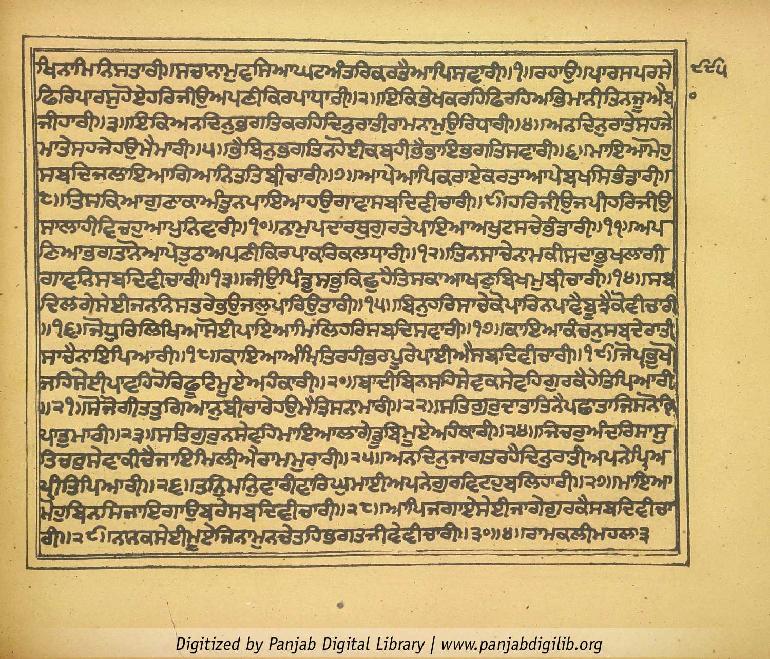 ਖਿਨਾਮਿਨਿਸਤਾਰੀ॥ਸਚਾਨਾਮੁਵਸਿਆਘਟਅੰਤਰਿਕਰਤੈਆਪਿਸਵਾਰੀ॥੧॥ਰਹਾਉ॥ਪਾਰਸਪਰਸੇ
ਫਿਰਿਪਾਰਸੁਹੋਏਹਰਿਜੀਉਅਪਣੀਕਿਰਪਾਧਾਰੀ॥੨॥ਇਕਿਭੇਖਕਰਹਿਫਿਰਹਿਅਭਿਮਾਨੀਤਿਨਜੂਐਬਾ
ਜੀਹਾਰੀ॥੩॥ਇਕਿਅਨਦਿਨੁਭਗਤਿਕਰਹਿਦਿਨੁਰਾਤੀਰਾਮਨਾਮੁਉਰਿਧਾਰੀ॥੪॥ਅਨਦਿਨੁਰਾਤੇਸਹਜੇ
ਮਾਤੇਸਹਜੇਹਉਮੈਮਾਰੀ॥੫॥ਭੈਬਿਨੁਭਗਤਿਨਹੋਈਕਬਹੀਭੈਭਾਇਭਗਤਿਸਵਾਰੀ॥੬॥ਮਾਇਆਮੋਹੁ
ਸਬਦਿਜਲਾਇਆਗਿਆਨਿਤਤਿਬੀਚਾਰੀ॥੭॥ਆਪੇਆਪਿਕਰਾਏਕਰਤਾਆਪੇਬਖਸਿਭੰਡਾਰੀ॥
੮॥ਤਿਸਕਿਆਗੁਣਾਕਾਅੰਤੁਨਪਾਇਆਹਉਗਾਵਾਸਬਦਿਵੀਚਾਰੀ॥੯॥ਹਰਿਜੀਉਜਪੀਹਰਿਜੀਉ
ਸਾਲਾਹੀਵਿਚਹੁਆਪੁਨਿਵਾਰੀ॥੧੦॥ਨਾਮੁਪਦਾਰਥੁਗੁਰਤੇਪਾਇਆਅਖੁਟਸਚੇਭੰਡਾਰੀ॥੧੧॥ਅਪ
ਣਿਆਭਗਤਾਨੋਆਪੇਤੁਠਾਅਪਣੀਕਿਰਪਾਕਰਿਕਲਧਾਰੀ॥੧੨॥ਤਿਨਸਾਚੇਨਾਮਕੀਸਦਾਭੁਖਲਾਗੀ
ਗਾਵਨਿਸਬਦਿਵੀਚਾਰੀ॥੧੩॥ਜੀਉਪਿੰਡੁਸਭੁਕਿਛੁਹੈਤਿਸਕਾਆਖਣੁਬਿਖਮੁਬੀਚਾਰੀ॥੧੪॥ਸਬ
ਦਿਲਗੇਸੇਈਜਨਨਿਸਤਰੇਭਉਜਲੁਪਾਰਿਉਤਾਰੀ॥੧੫॥ਬਿਨੁਹਰਿਸਾਚੇਕੋਪਾਰਿਨਪਾਵੈਬੂਝੈਕੋਵੀਚਾਰੀ
॥੧੬॥ਜੋਧੁਰਿਲਿਖਿਆਸੋਈਪਾਇਆਮਿਲਿਹਰਿਸਬਦਿਸਵਾਰੀ॥੧੭॥ਕਾਇਆਕੰਚਨੁਸਬਦੇਰਾਤੀ
ਸਾਚੈਨਾਇਪਿਆਰੀ॥੧੮॥ਕਾਇਆਅੰਮ੍ਰਿਤਿਰਹੀਭਰਪੂਰੇਪਾਈਐਸਬਦਿਵੀਚਾਰੀ॥੧੯॥ਜੋਪ੍ਰਭੁਖੋ
ਜਹਿਸੇਈਪਾਵਹਿਹੋਰਿਫੂਟਿਮੂਏਅਹੰਕਾਰੀ॥੨੦॥ਬਾਦੀਬਿਨਸਹਿਸੇਵਕਸੇਵਹਿਗੁਰਕੈਹੇਤਿਪਿਆਰੀ
॥੨੧॥ਸੋਜੋਗੀਤਤੁਗਿਆਨੁਬੀਚਾਰੇਹਉਮੈਤ੍ਰਿਸਨਾਮਾਰੀ॥੨੨॥ਸਤਿਗੁਰੁਦਾਤਾਤਿਨੈਪਛਾਤਾਜਿਸਨੋਕ੍ਰਿ
ਪਾਤੁਮਾਰੀ॥੨੩॥ਸਤਿਗੁਰੁਨਸੇਵਹਿਮਾਇਆਲਾਗੇਡੂਬਿਮੂਏਅਹੰਕਾਰੀ॥੨੪॥ਜਿਚਰੁਅੰਦਰਿਸਾਸੁ
ਤਿਚਰੁਸੇਵਾਕੀਚੈਜਾਇਮਿਲੀਐਰਾਮਮੁਰਾਰੀ॥੨੫॥ਅਨਦਿਨੁਜਾਗਤਰਹੈਦਿਨੁਰਾਤੀਅਪਨੇਪ੍ਰਿਅ
ਪ੍ਰੀਤਿਪਿਆਰੀ॥੨੬॥ਤਨੁਮਨੁਵਾਰੀਵਾਰਿਘੁਮਾਈਅਪਨੇਗੁਰਵਿਟਹੁਬਲਿਹਾਰੀ॥੨੭॥ਮਾਇਆ
ਮੋਹੁਬਿਨਸਿਜਾਇਗਾਉਬਰੇਸਬਦਿਵੀਚਾਰੀ॥੨੮॥ਆਪਿਜਗਾਏਸੇਈਜਾਗੇਗੁਰਕੈਸਬਦਿਵੀਚਾ
ਰੀ॥੨੯॥ਨਾਨਕਸੇਈਮੂਏਜਿਨਾਮੁਨਚੇਤਹਿਭਗਤਜੀਵੇਵੀਚਾਰੀ॥੩੦॥੪॥ਰਾਮਕਲੀਮਹਲਾ੩
Digitized by Panjab Digital Library | www.panjabdigilib.org